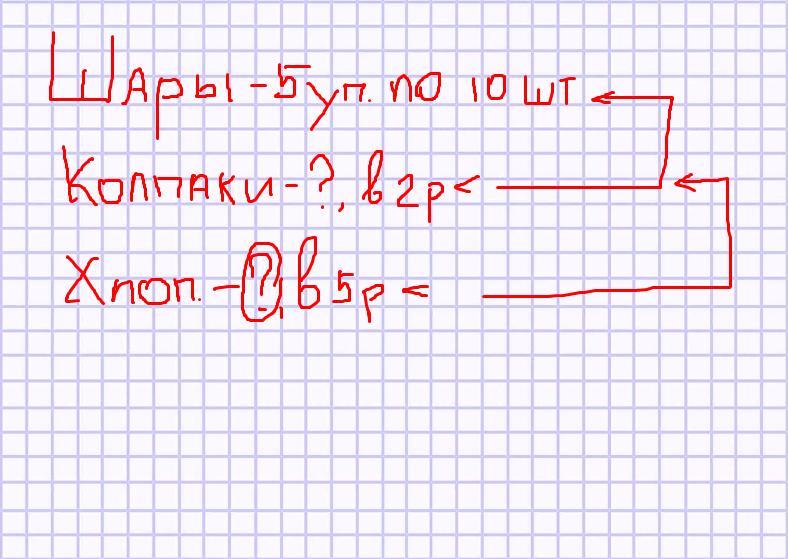 Шары - 5 уп. по 10 шт
Колпаки - ?, в 2 р <
Хлоп. - ?, в 5 р <